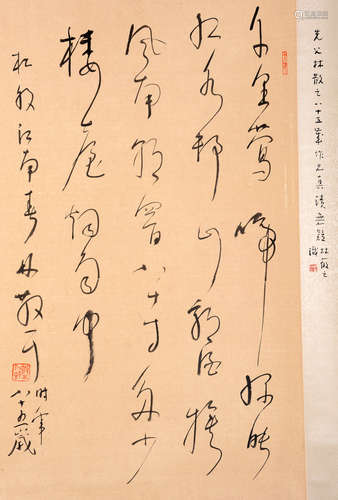 先父林散之八十五歲作真蹟無疑 林筱之
識
千里鶯啼綠映
紅水邨山郭酒旗
風南朝四百八十寺多少
樓臺烟雨中
杜牧江南春 林散耳
時年
八十五歲